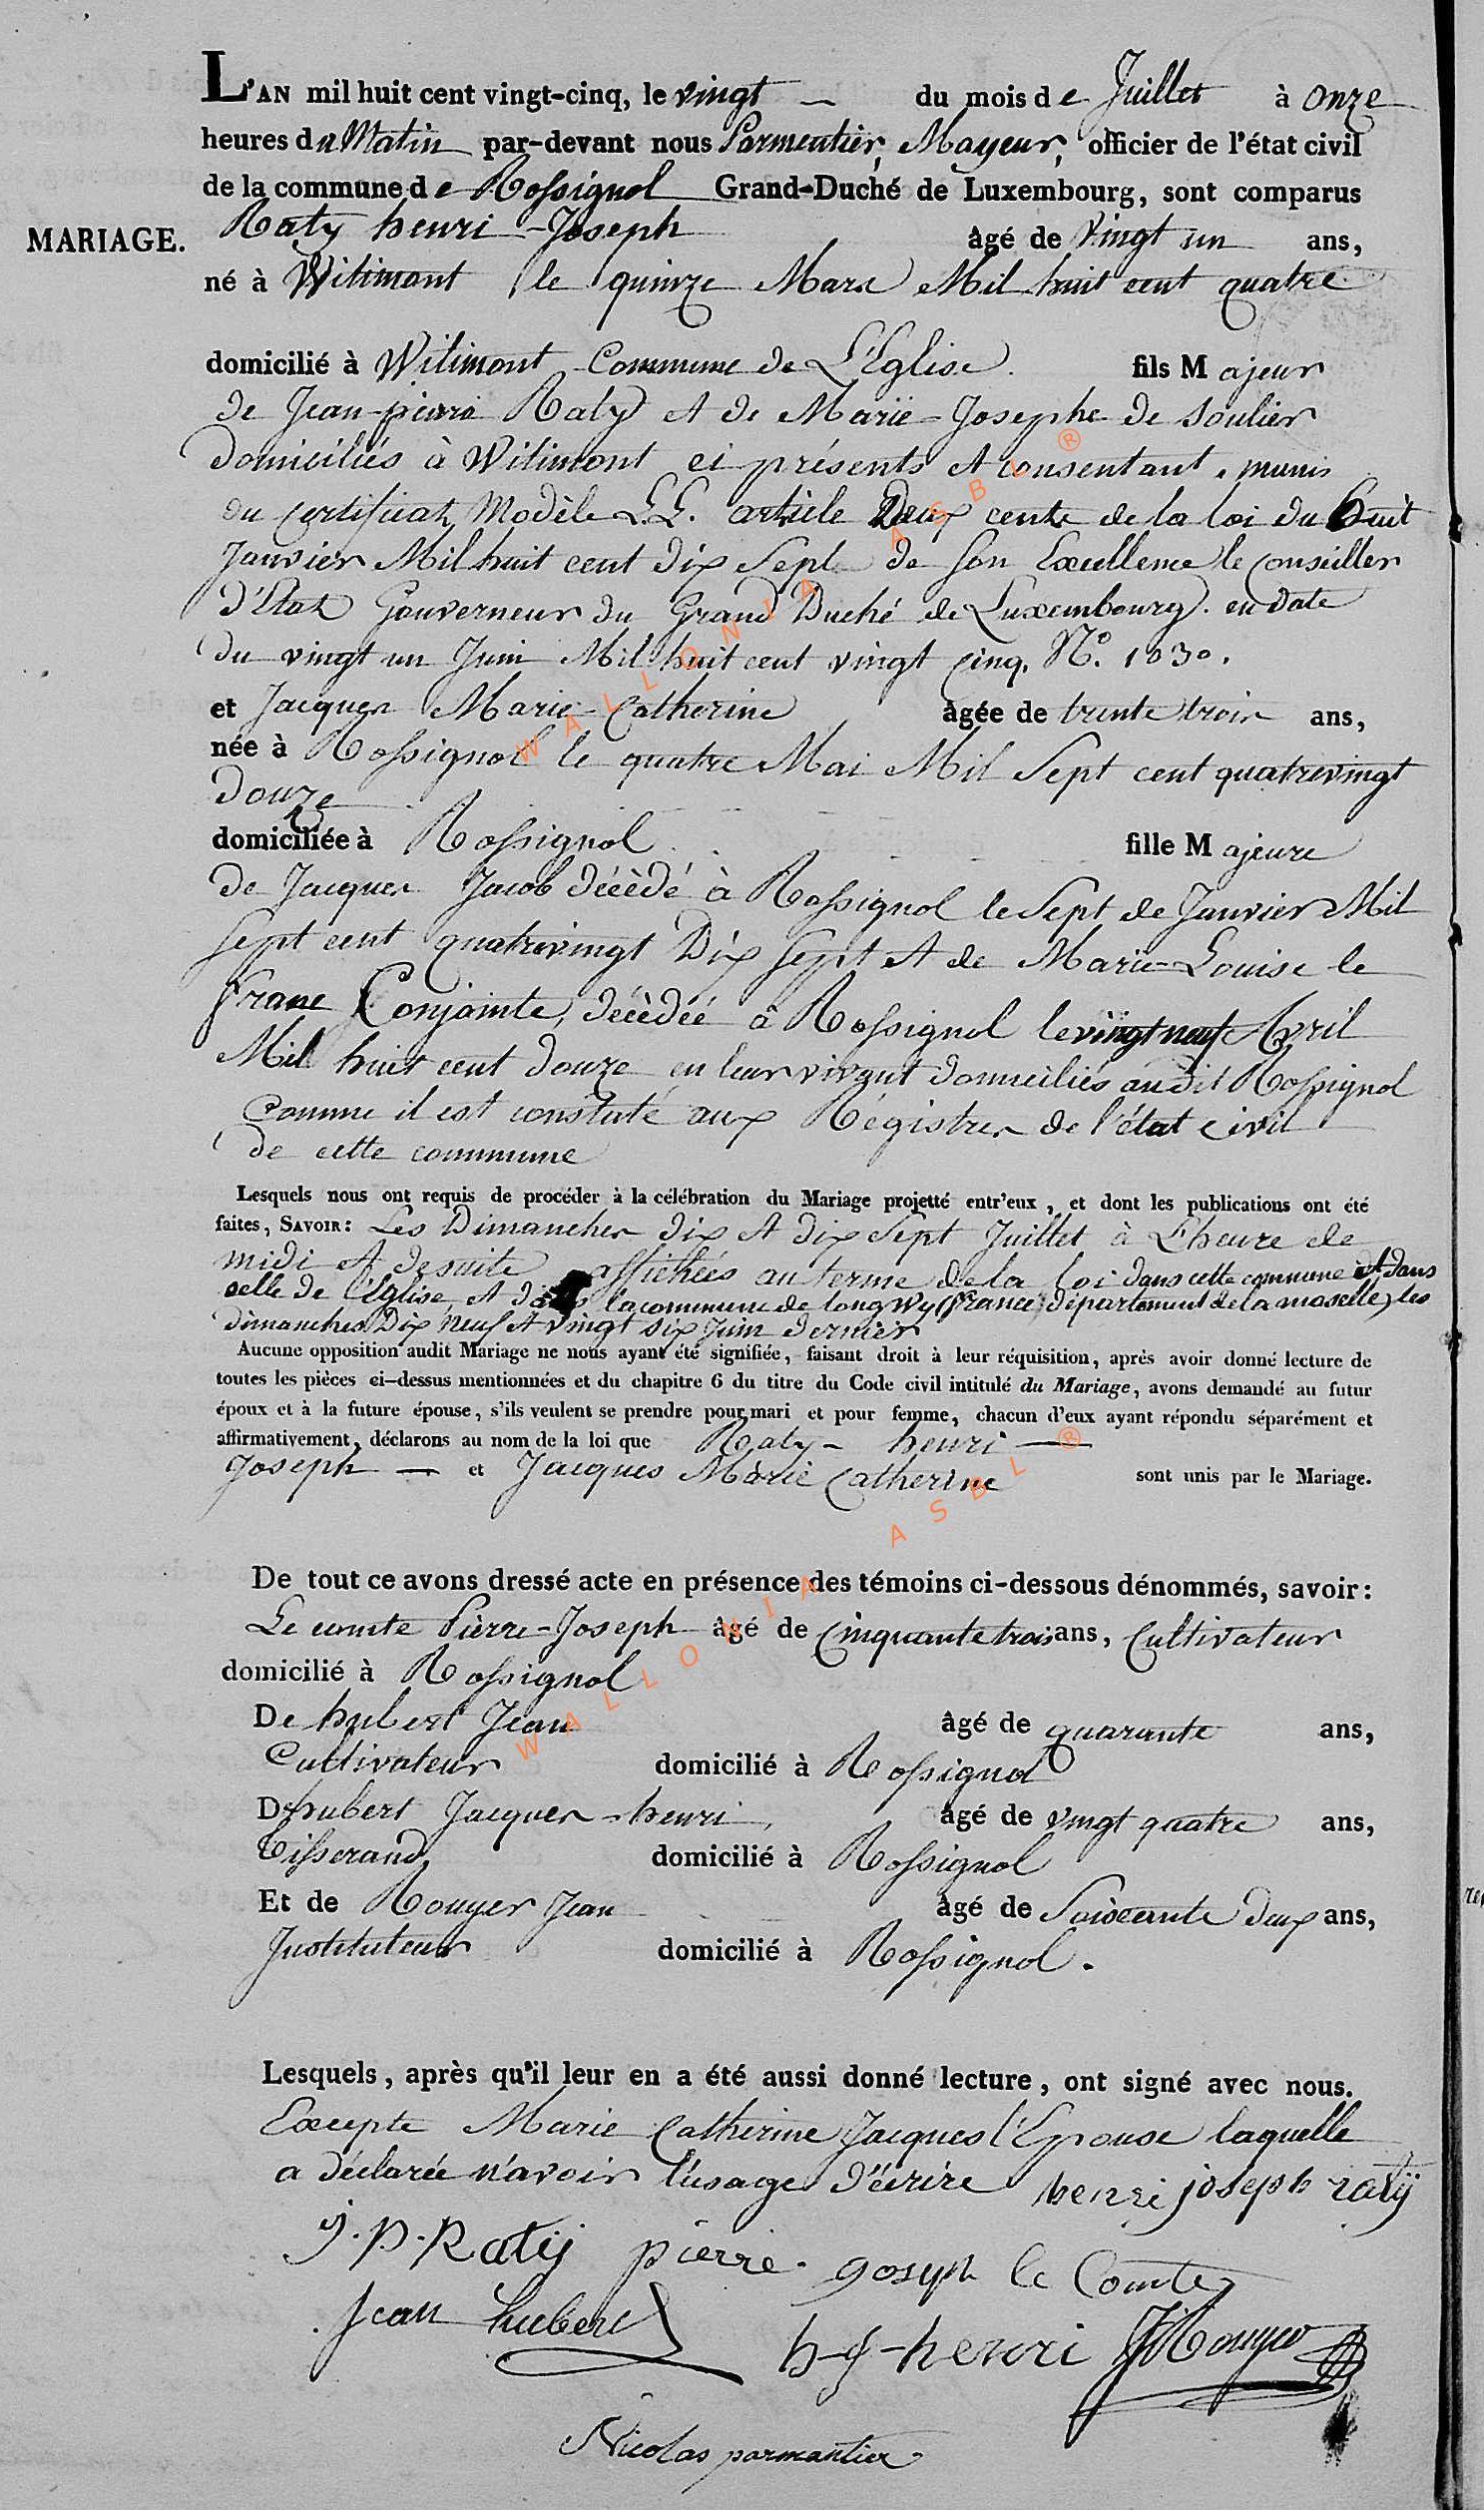 L'AN mil huit cent vingt-cinq, le vingt — du mois de Juillet à onze
heures du Matin par-devant nous Parmentier, Mayeur, officier de l'état civil
de la commune de Rossignol Grand-Duché de Luxembourg, sont comparus
MARIAGE. Raty henri-Joseph âgé de vingt un ans,
né à Witimont le quinze Mars Mil huit cent quatre
domicilié à Witimont Commune de L'Eglise. fils Majeur
de Jean-pierre Raty et de Marie-Josephe de soulier
domiciliés à Witimont ci présents et consentant, munis
du certificat, Modèle LL. article Deux cents de la loi du huit
Janvier Mil huit cent dix Sept de Son Excellence le conseiller
d'Etat Gouverneur du Grand Duché de Luxembourg. en date
du vingt un Juin Mil huit cent vingt cinq, N.º 1030.
et Jacques Marie-Catherine âgée de trente trois ans,
née à Rossignol le quatre Mai Mil Sept cent quatrevingt
douze
domiciliée à Rossignol fille Majeure
de Jacques Jacob décèdé à Rossignol le Sept de Janvier Mil
Sept cent quatrevingt Dix Sept et de Marie-Louise le
franc Conjointe, décèdée à Rossignol le vingt neuf Avril
Mil huit cent douze en leur vivant domiciliés audit Rossignol
Comme il est constaté aux Régistres de l'état civil
de cette commune
Lesquels nous ont requis de procéder à la célébration du Mariage projetté entr'eux, et dont les publications ont été
faites, SAVOIR: Les Dimanches dix et dix Sept Juillet à L'heure de
midi et desuite affichées au terme de la loi dans cette commune et dans
celle de L'Eglise, et dans la commune de longwy (france, département de la moselle) les
dimanches Dix neuf et vingt six Juin dernier
Aucune opposition audit Mariage ne nous ayant été signifiée, faisant droit à leur réquisition, après avoir donné lecture de
toutes les pièces ci-dessus mentionnées et du chapitre 6 du titre du Code civil intitulé du Mariage, avons demandé au futur
époux et à la future épouse, s'ils veulent se prendre pour mari et pour femme, chacun d'eux ayant répondu séparément et
affirmativement, déclarons au nom de la loi que Raty- henri —
Joseph — et Jacques Marie Catherine sont unis par le Mariage.
De tout ce avons dressé acte en présence des témoins ci-dessous dénommés, savoir:
Le comte Pierre-Joseph âgé de Cinquante trois ans, Cultivateur
domicilié à Rossignol
De hubert Jean âgé de quarante ans,
Cultivateur domicilié à Rossignol
D'hubert Jacques-henri, âgé de vingt quatre ans,
Tisserand domicilié à Rossignol
Et de Rouyer Jean âgé de Soixante deux ans,
Instituteur domicilié à Rossignol.
Lesquels, après qu'il leur en a été aussi donné lecture, ont signé avec nous.
Excepte Marie Catherine Jacques l'Epouse laquelle
a déclarée n'avoir l'usage d'écrire henri joseph ratÿ
J. P. Ratij pierre. Joseph le Comte
Jean hubert h-J-henri JRouyer
Nicolas parmantier
WALLONIA ASBL ®
WALLONIA ASBL ®